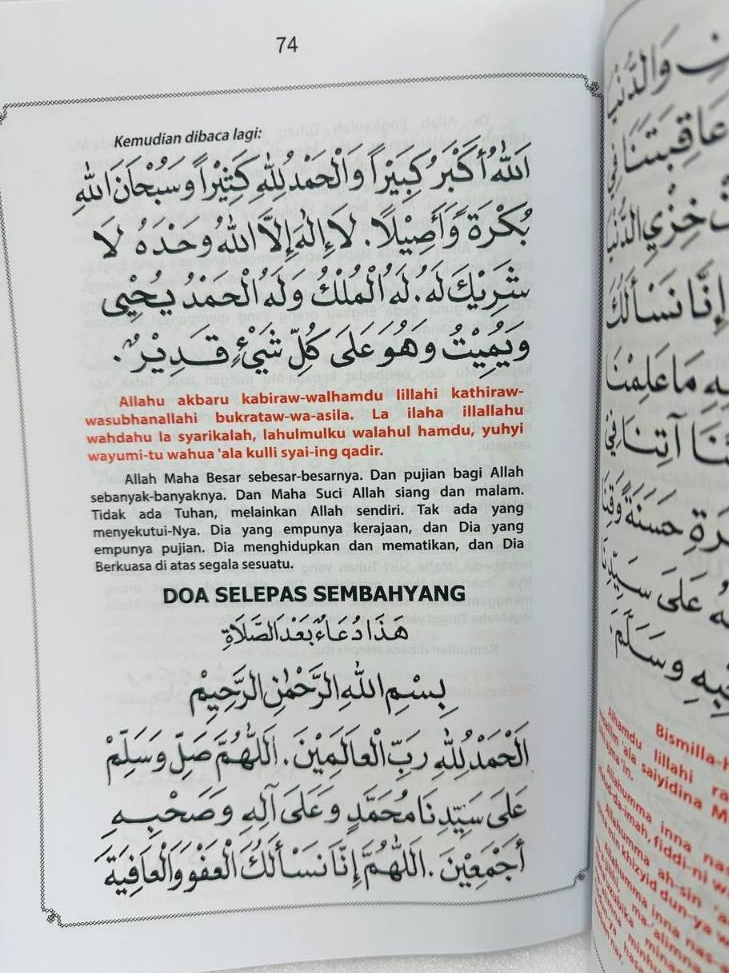 74
Kemudian dibaca lagi:
اَللهُ أَكْبَرُ كَبِيْرًا وَالْحَمْدُ لِلّٰهِ كَثِيْرًا وَسُبْحَانَ اللهِ
بُكْرَةً وَأَصِيْلًا. لَا إِلٰهَ إِلَّا اللهُ وَحْدَهُ لَا
شَرِيْكَ لَهُ. لَهُ الْمُلْكُ وَلَهُ الْحَمْدُ يُحْيِى
وَيُمِيْتُ وَهُوَ عَلَى كُلِّ شَيْءٍ قَدِيْرٌ.
Allahu akbaru kabiraw-walhamdu lillahi kathiraw-
wasubhanallahi bukrataw-wa-asila. La ilaha illallahu
wahdahu la syarikalah, lahulmulku walahul hamdu, yuhyi
wayumi-tu wahua 'ala kulli syai-ing qadir.
Allah Maha Besar sebesar-besarnya. Dan pujian bagi Allah
sebanyak-banyaknya. Dan Maha Suci Allah siang dan malam.
Tidak ada Tuhan, melainkan Allah sendiri. Tak ada yang
menyekutui-Nya. Dia yang empunya kerajaan, dan Dia yang
empunya pujian. Dia menghidupkan dan mematikan, dan Dia
Berkuasa di atas segala sesuatu.
DOA SELEPAS SEMBAHYANG
هَذَا دُعَاءٌ بَعْدَ الصَّلَاةِ
بِسْمِ اللهِ الرَّحْمٰنِ الرَّحِيْمِ
اَلْحَمْدُ لِلّٰهِ رَبِّ الْعَالَمِيْنَ. اَللّٰهُمَّ صَلِّ وَسَلِّمْ
عَلَى سَيِّدِنَا مُحَمَّدٍ وَعَلَى آلِهِ وَصَحْبِهِ
أَجْمَعِيْنَ. اَللّٰهُمَّ إِنَّا نَسْأَلُكَ الْعَفْوَ وَالْعَافِيَةَ
وَالدُّنْيَا
عَاقِبَتَنَا فِي
خِزْيِ الدُّنْيَا
إِنَّا نَسْأَلُكَ
مَا عَلِمْنَا
آتِنَا فِي
حَسَنَةً وَقِنَا
عَلَى سَيِّدِنَا
وَسَلَّمَ.
Bismilla-h
Alhamdu lillahi ra
'ala saiyidina M
Allahumma inna nas
fiddi-ni w
Allahumma ah-sin 'a
khizyid dun-ya w
Allahumma inna nas-a
ma-'alimna